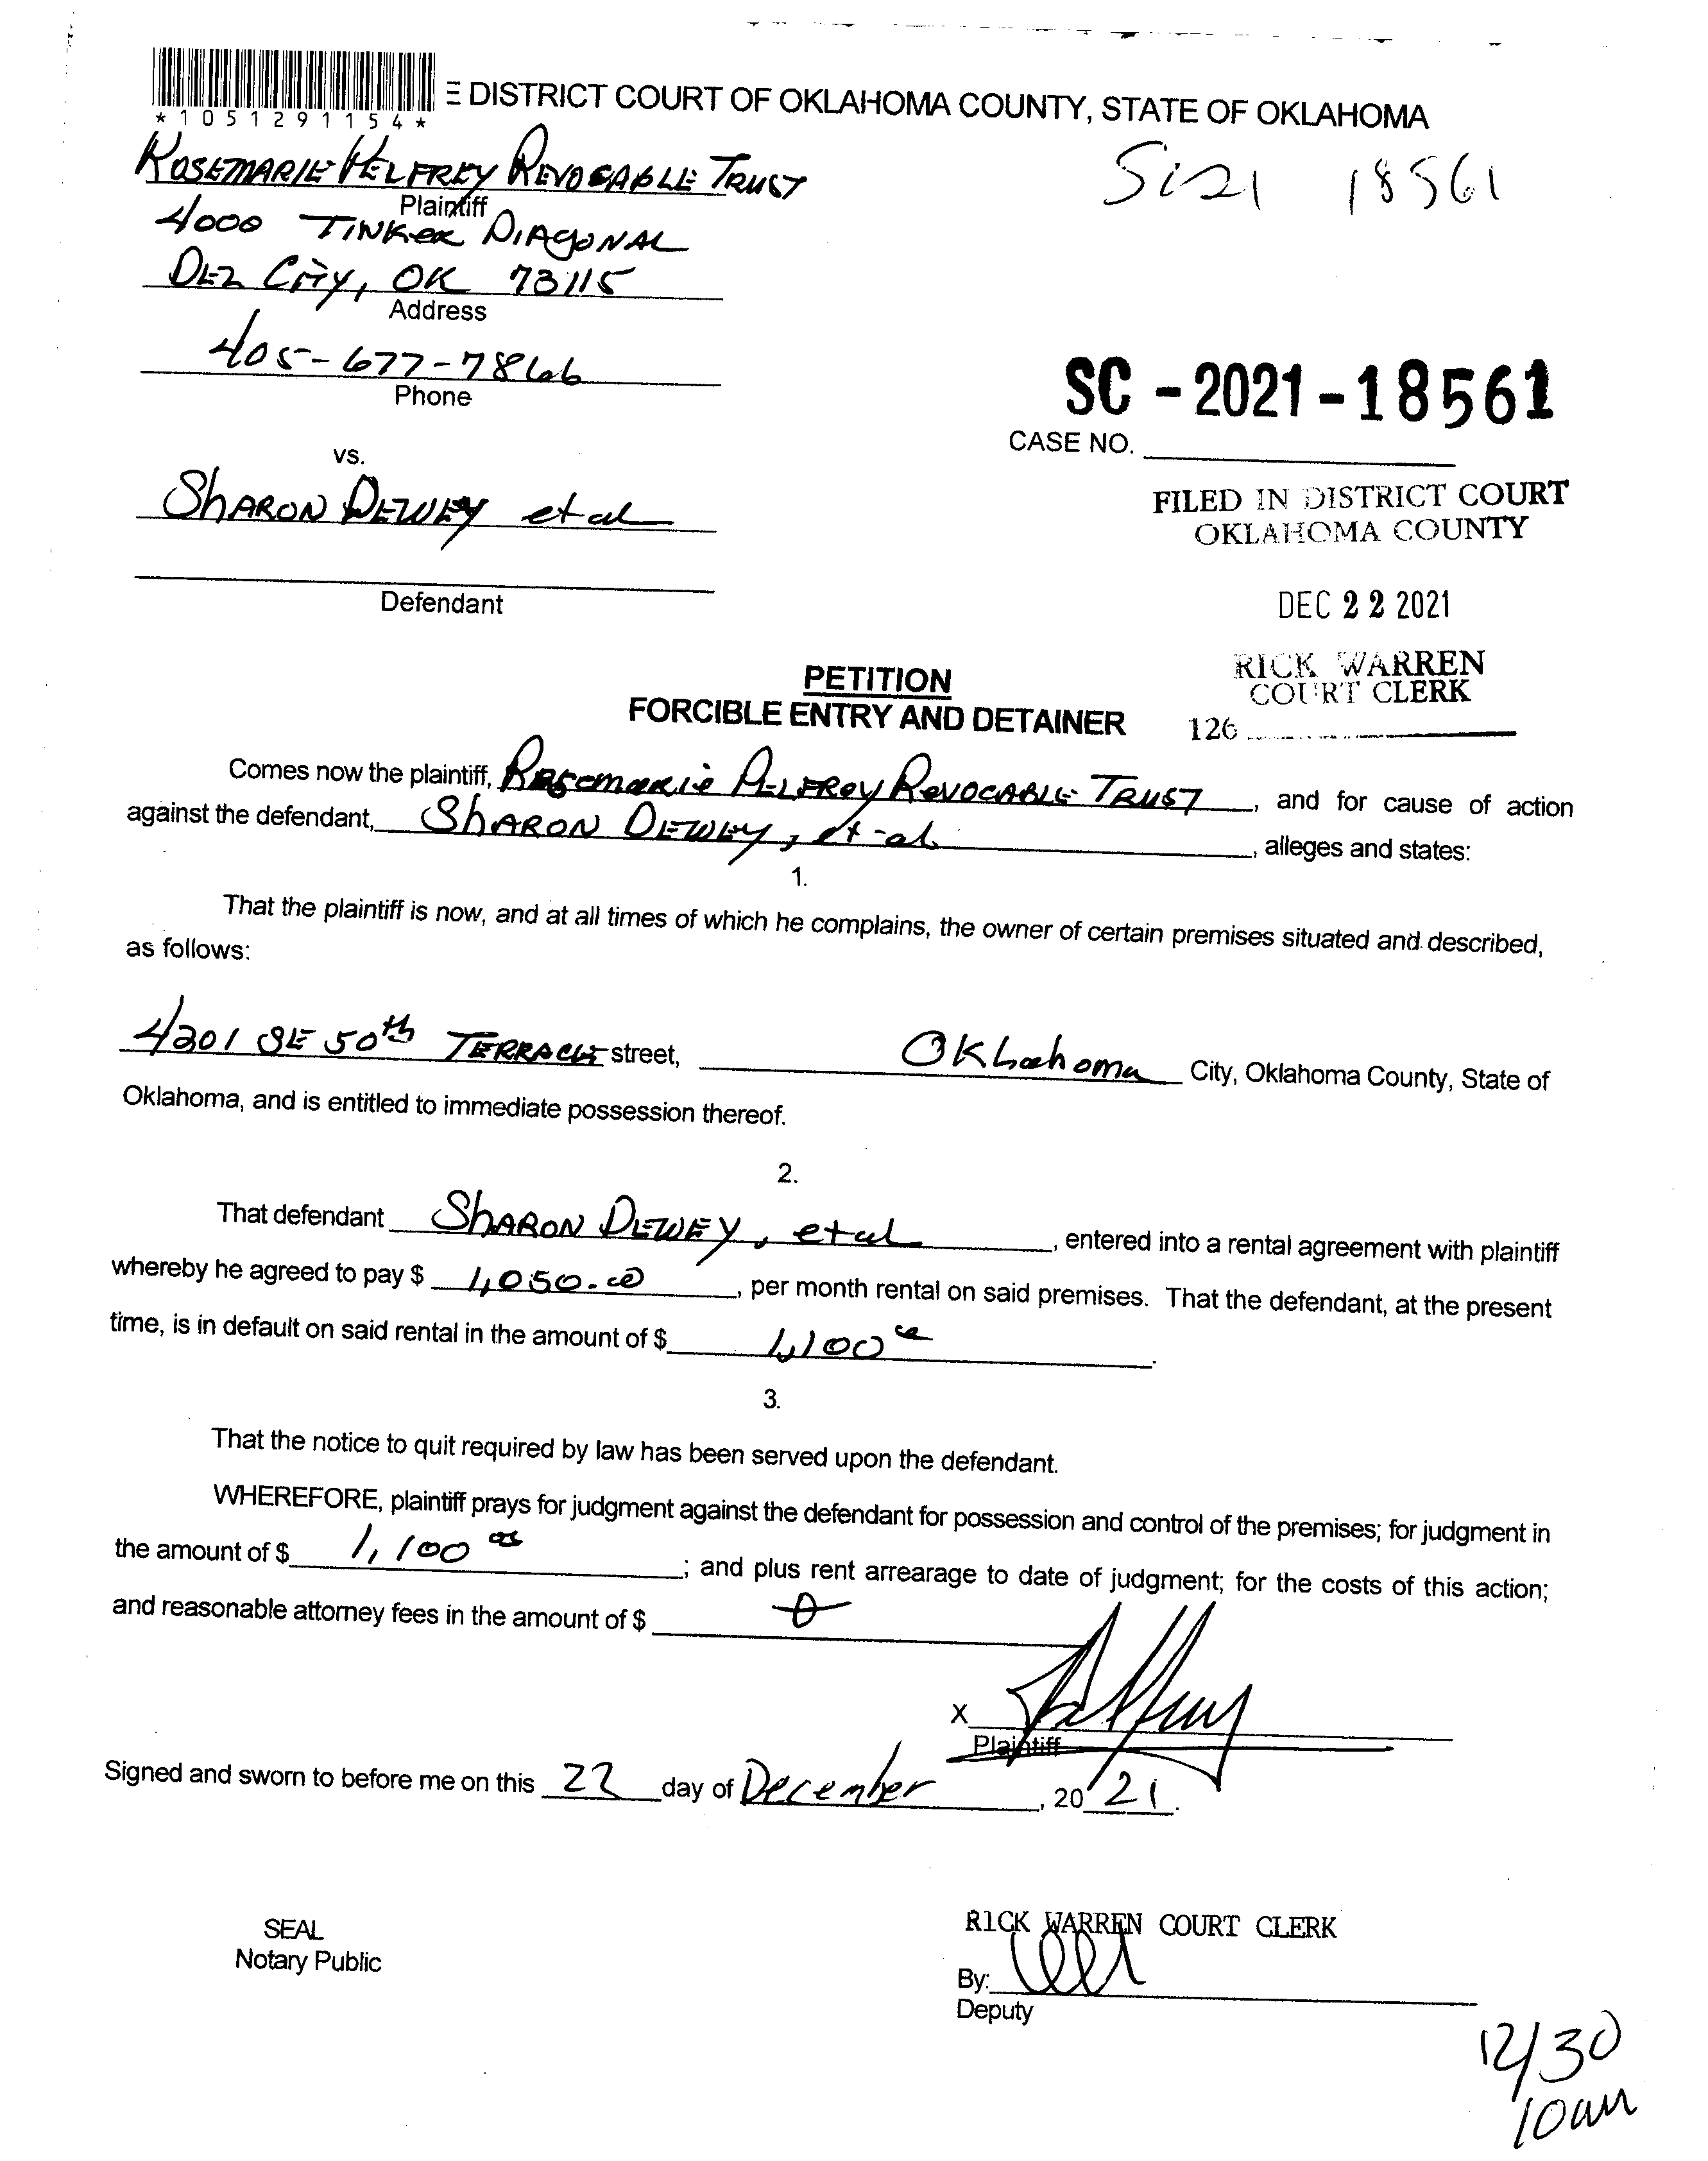 *1051291154*
E DISTRICT COURT OF OKLAHOMA COUNTY, STATE OF OKLAHOMA
ROSEMARIE PELFREY REVOCABLE TRUST
Plaintiff
18561
4000 TINKER DIAGONAL
DEL CITY, OK 73115
Address
405-677-7866
Phone
SC - 2021 - 18561
CASE NO.
vs.
SHARON DEWEY et al
FILED IN DISTRICT COURT
OKLAHOMA COUNTY
Defendant
DEC 22 2021
RICK WARREN
COURT CLERK
126
PETITION
FORCIBLE ENTRY AND DETAINER
Comes now the plaintiff, Rosemarie PELFREY REVOCABLE TRUST, and for cause of action
against the defendant, SHARON DEWEY, et-al, alleges and states:
1.
That the plaintiff is now, and at all times of which he complains, the owner of certain premises situated and described,
as follows:
4201 SE 50th TERRACE street, Oklahoma City, Oklahoma County, State of
Oklahoma, and is entitled to immediate possession thereof.
2.
That defendant SHARON DEWEY, et al, entered into a rental agreement with plaintiff
whereby he agreed to pay $ 1,050.00, per month rental on said premises. That the defendant, at the present
time, is in default on said rental in the amount of $ 1,100 00.
3.
That the notice to quit required by law has been served upon the defendant.
WHEREFORE, plaintiff prays for judgment against the defendant for possession and control of the premises; for judgment in
the amount of $ 1,100 00; and plus rent arrearage to date of judgment; for the costs of this action;
and reasonable attorney fees in the amount of $ 0
X
Plaintiff
Signed and sworn to before me on this 22 day of December, 20 21.
SEAL
Notary Public
RICK WARREN COURT CLERK
By:
Deputy
12/30
10am